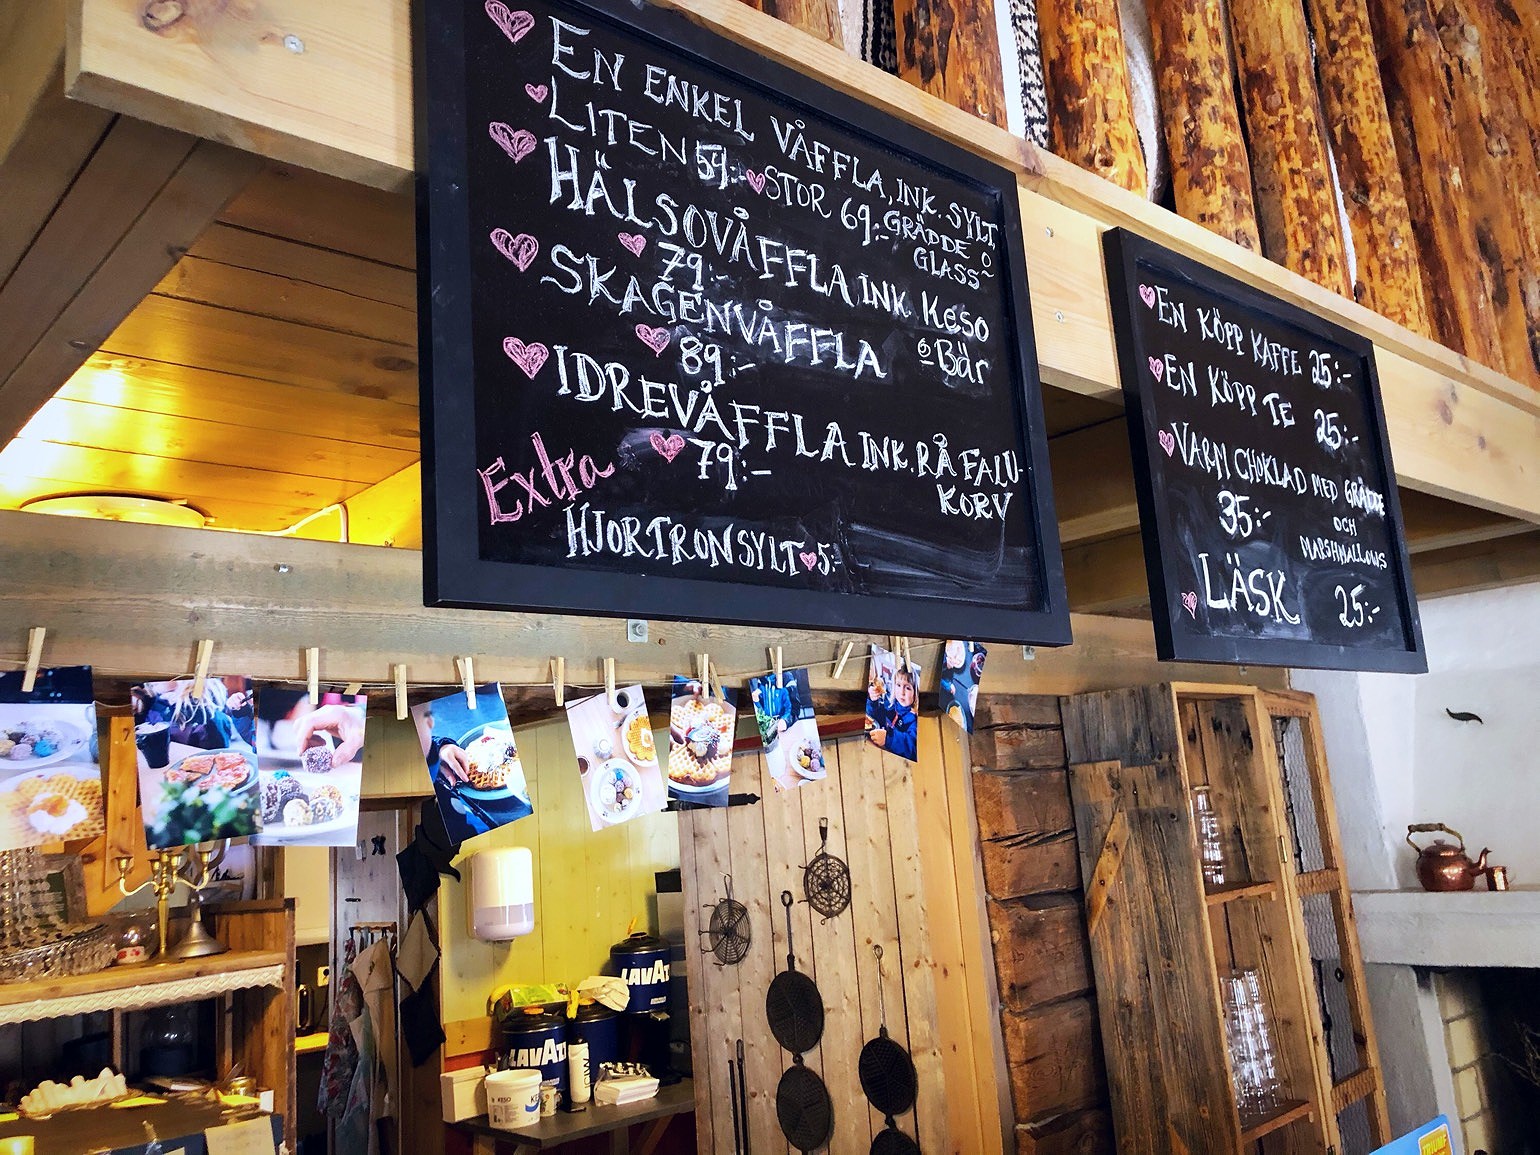 EN ENKEL VÅFFLA, INK. SYLT,
LITEN 59:- STOR 69:- GRÄDDE O
GLASS
HÄLSOVÅFFLA INK KESO
79:- O BÄR
SKAGENVÅFFLA
89:-
IDREVÅFFLA INK. RÅ FALU-
79:- KORV
Extra
HJORTRONSYLT 5:-
EN KÖPP KAFFE 25:-
EN KÖPP TE 25:-
VARM CHOKLAD MED GRÄDDE
35:- OCH
MARSHMALLOWS
LÄSK 25:-
LAVAZ
LAVAZ
KESO